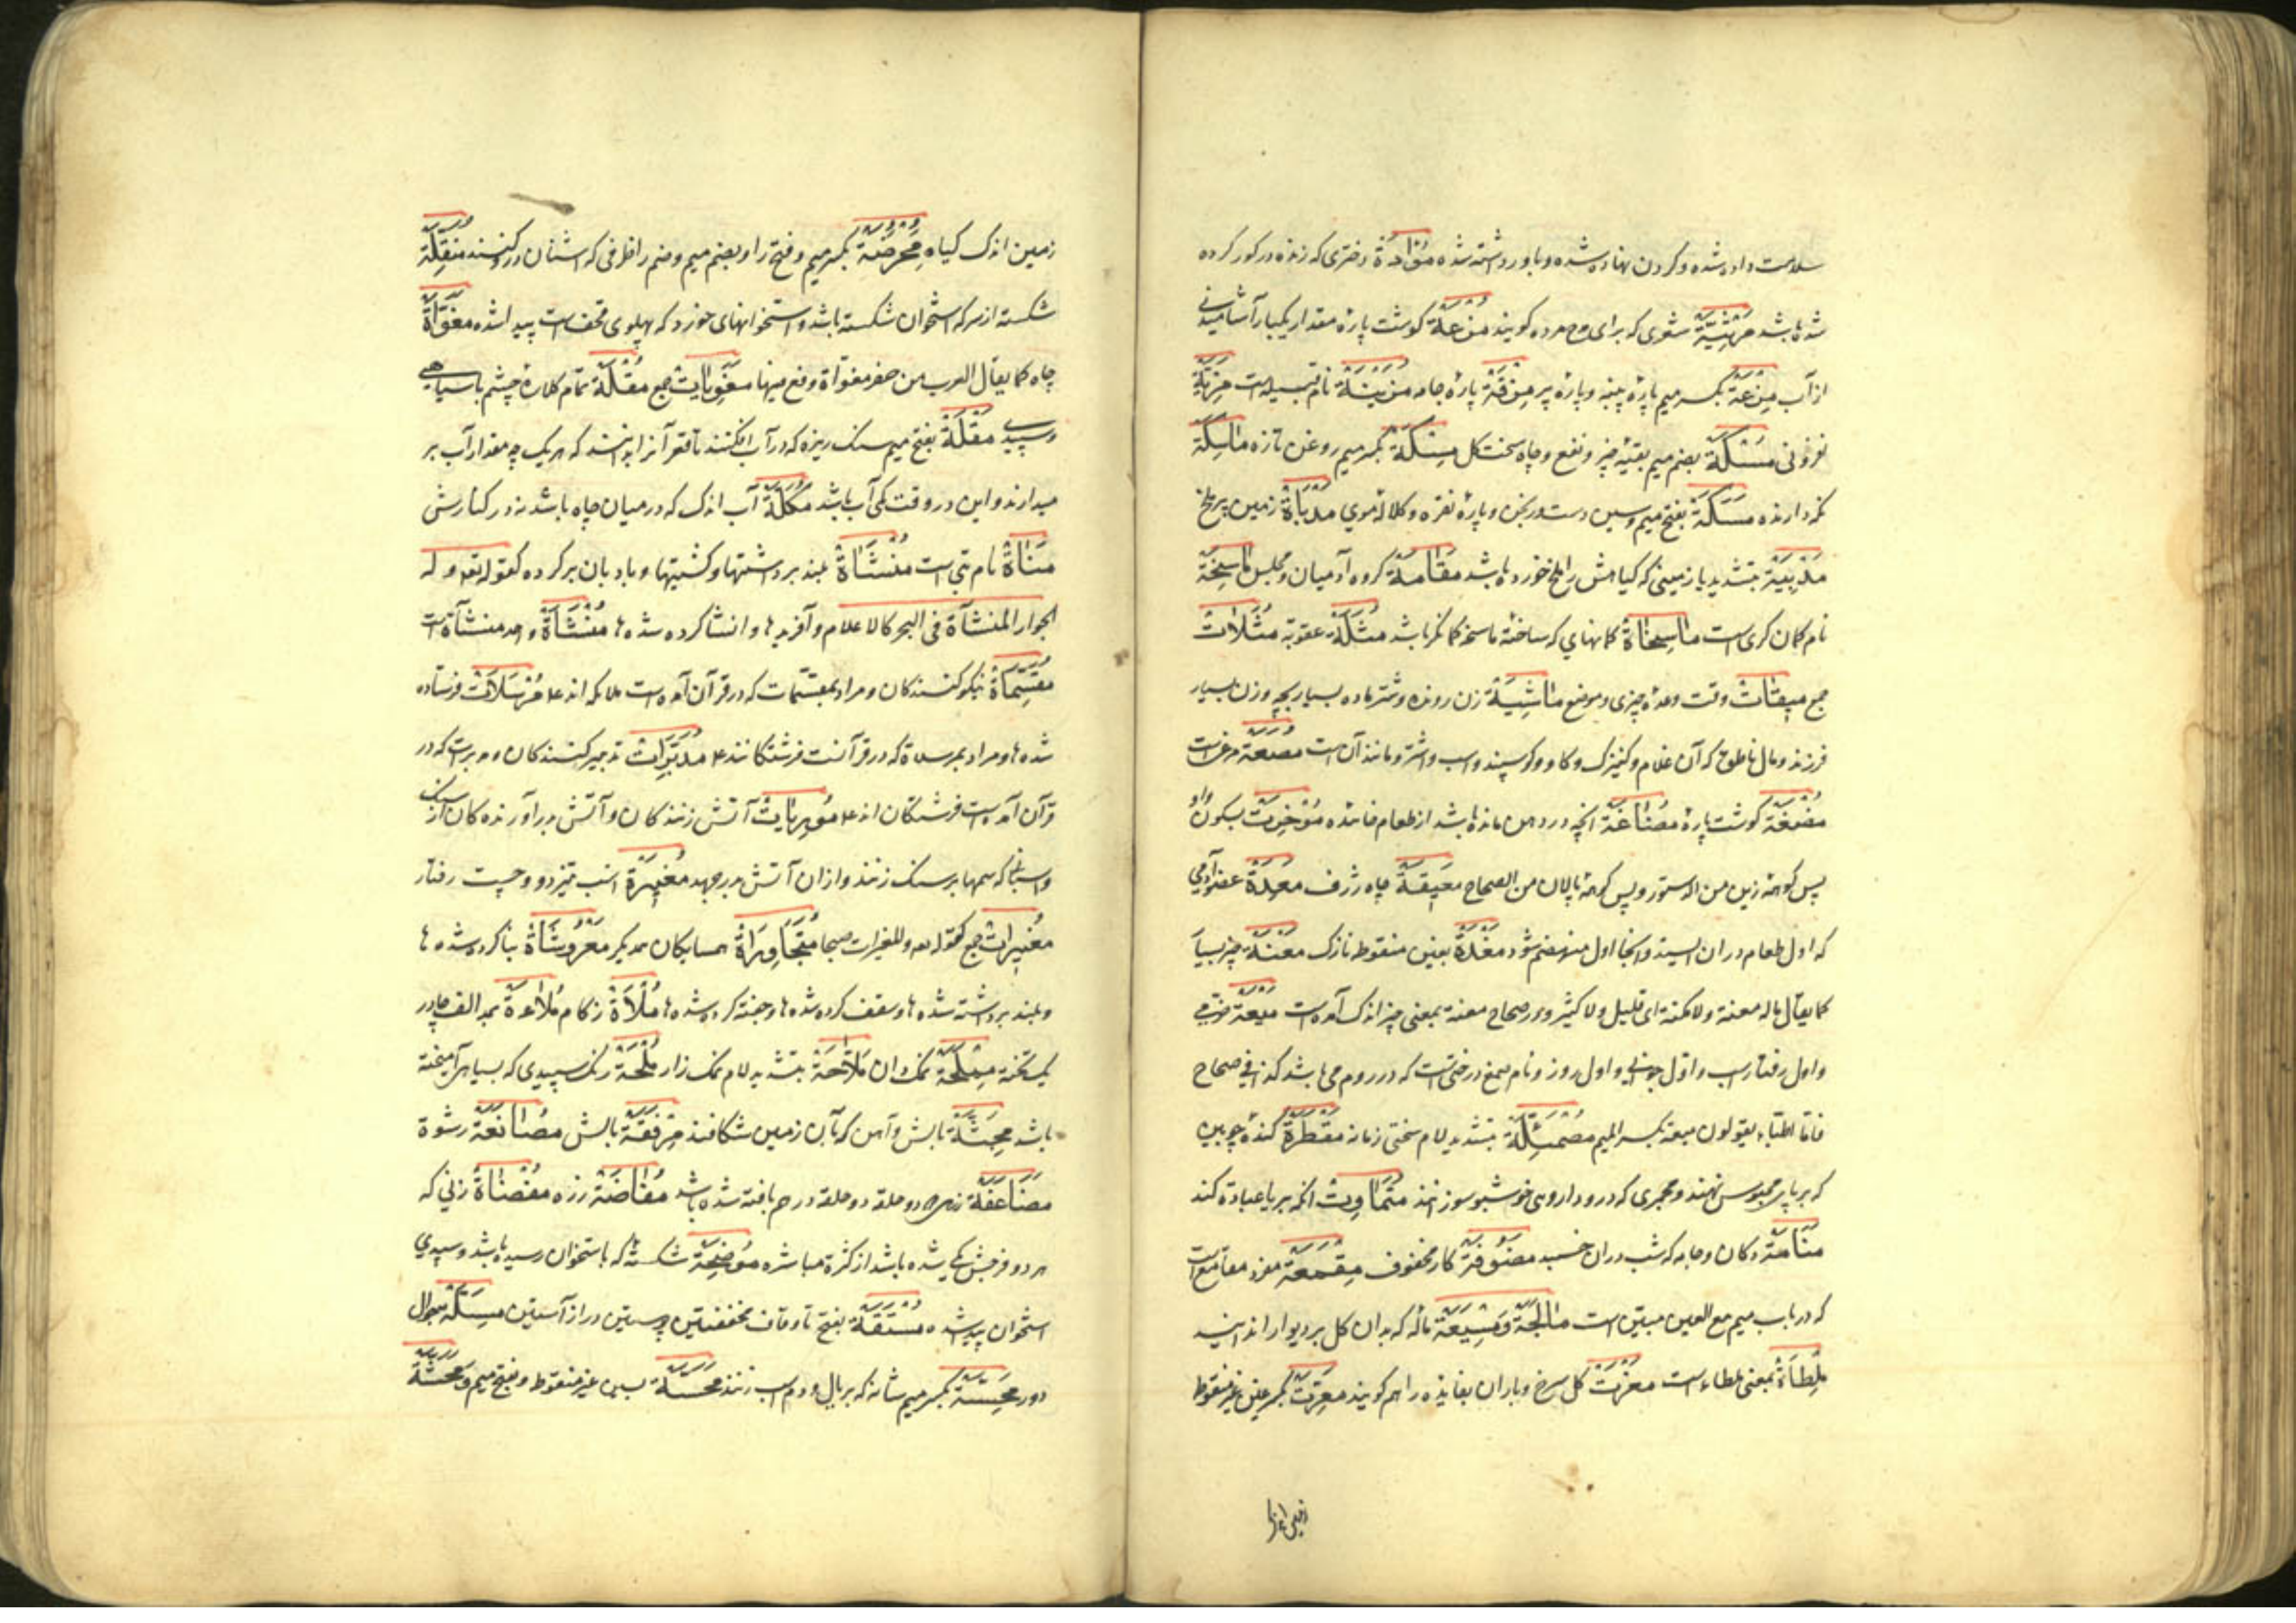 سلامت داده شده و گردن نهاده شده و باور داشته شده مؤادة دختری که زنده در کور کرده
شده باشد مرثیة شعری که برای مدح مرده کویند مزعة کوشت پاره مقدار یکبار آشامیدنی
از آب مزعة بکسر میم پارهٔ پنبه و پارهٔ پر مزقة پارهٔ جامه مزینة نام قبیله است مزیة
فزونی مسکة بضم میم بقیهٔ چیز و نفع و چاه سخت کل مسکة بکسر میم روغن تازه ماسکة
نکه دارنده مسکة بفتح میم و سین دست ورنجن و پارهٔ نقره و کلالهٔ موی مدباة زمین پر ملخ
مدبیة بتشدید یا زمینی که کیاهش را ملخ خورده باشد مقامة کروه آدمیان و مجلس ماسخة
نام کمان کری است ماسخاة کمانهای که ساختهٔ ماسخه کمانکر باشد مثلة عقوبة مثلات
جمع میقات وقت وعدهٔ چیزی و موضع ماشیة زن رونده و شتر ماده بسیار بچه و زن بسیار
فرزند و مال ناطق که آن غلام و کنیزک و کاو و کوسپند و اسب و اشتر و مانند آن است مصعة مرغیست
مضغة کوشت پاره مضاغة آنچه در دهن مانده باشد از طعام خائیده مؤخرت بسکون واو
پس کوههٔ زین من الدستور و پس کوههٔ پالان من الصحاح معیقة چاه ژرف معدة عضو آدمی
که اول طعام در ان ایستد و آنجا اول منهضم شود مغدة بغین منقوطه نازک معنة چیز بسیار
کما یقال ماله معنة ولا سعنة ای قلیل ولا کثیر و در صحاح معنة بمعنی چیز اندک آمده است میعة
و اول رفتار اسب و اول جوانی و اول روز و نام صمغ درختی است که در روم می باشد کذا فی صحاح
فاما اطبا یقولون میعة بکسر المیم مصمئلة بتشدید لام سختی زمانه مقطرة کندهٔ چوبین
که بر پای محبوس نهند و مجمری که در و داروهای خوشبو سوزانند متماوت انکه بریا عبادة کند
منامة دکان و جامه که شب در ان خسبد مقمعة مفرد مقامع است
که در باب میم مع العین مبین است مالجة و مشیعة ماله که بدان کل بر دیوار اندایند
ملطاة بمعنی ملطاء است مغرت کل سرخ و باران بفایده را هم کویند معرت بکسر عین غیر منقوطه
زمین اندک کیاه محرضة بکسر میم و فتح را و بضم میم و ضم را ظرفی که اشنان در و کنند منقلة
شکسته از سر که استخوان شکسته باشد و استخوانهای خورد که پهلوی قحف است پیدا شده مغواة
چاه کما یقال العرب من حفر مغواة وقع فیها مغویات جمع مقلة تمام کلازهٔ چشم با سیاهی
و سپیدی مقلة بفتح میم سنک ریزه که در آب افکنند تا قعر آنرا بدانند که هر یک چه مقدار آب بر
میدارند و این در وقت کمی آب باشد مکلة آب اندک که در میان چاه باشد نه در کنارش
مناة نام بتی است منشاة بلند برداشتها و کشتیها و بادبان بر کرده کقوله تع و له
الجوار المنشآة فی البحر کالاعلام و آفریدها و انشا کرده شده ها منشاة واحد منشآة است
مقسماة نیکو کنندکان و مراد بمقسمات که در قرآن آمده است ملائکه اند ع م مرسلات فرستاده
شده ها و مراد بمرسلاة که در قرآنست فرشتکانند ع م مدبرات تدبیر کنندکان و مدبرت که در
قرآن آمده است فرشتکان اند ع م موریات آتش زنندکان و آتش برآورنده کان از سنک
و اسبانی که سمها بر سنک زنند و از ان آتش بر جهد مغیرة اسب تیز دو و چست رفتار
مغیرات جمع کقوله تع والمغیرات صبحا متجاورة همسایکان یکدیکر معروشاة بنا کرده شده ها
و بلند برداشته شده ها و سقف کرده شده ها و جفته کرده شده ها ملأة زکام ملاءة بمد الف چادر
یک تخته مملحة نمک دان ملاحة بتشدید لام نمک زار ملحة رنک سپیدی که بسیاهی آمیخته
باشد محثة بالش و آهن که بآن زمین شکافند مرفقة بالش مصانعة رشوة
مضاعفة زره دو حلقه دو حلقه در هم بافته شده باشد مفاضة زره مفضاة زنی که
هر دو فرجش یکی شده باشد از کثرة مباشره موضحة شکستهٔ که باستخوان رسیده باشد و سپیدی
استخوان پیدا شده مستقة بفتح تا و قاف مخففتین پوستین دراز آستین مسئلة سوال
دور محسة بکسر میم شانه که بر یال و دم اسب زنند محسة بسین غیر منقوطه و بفتح میم و محشة